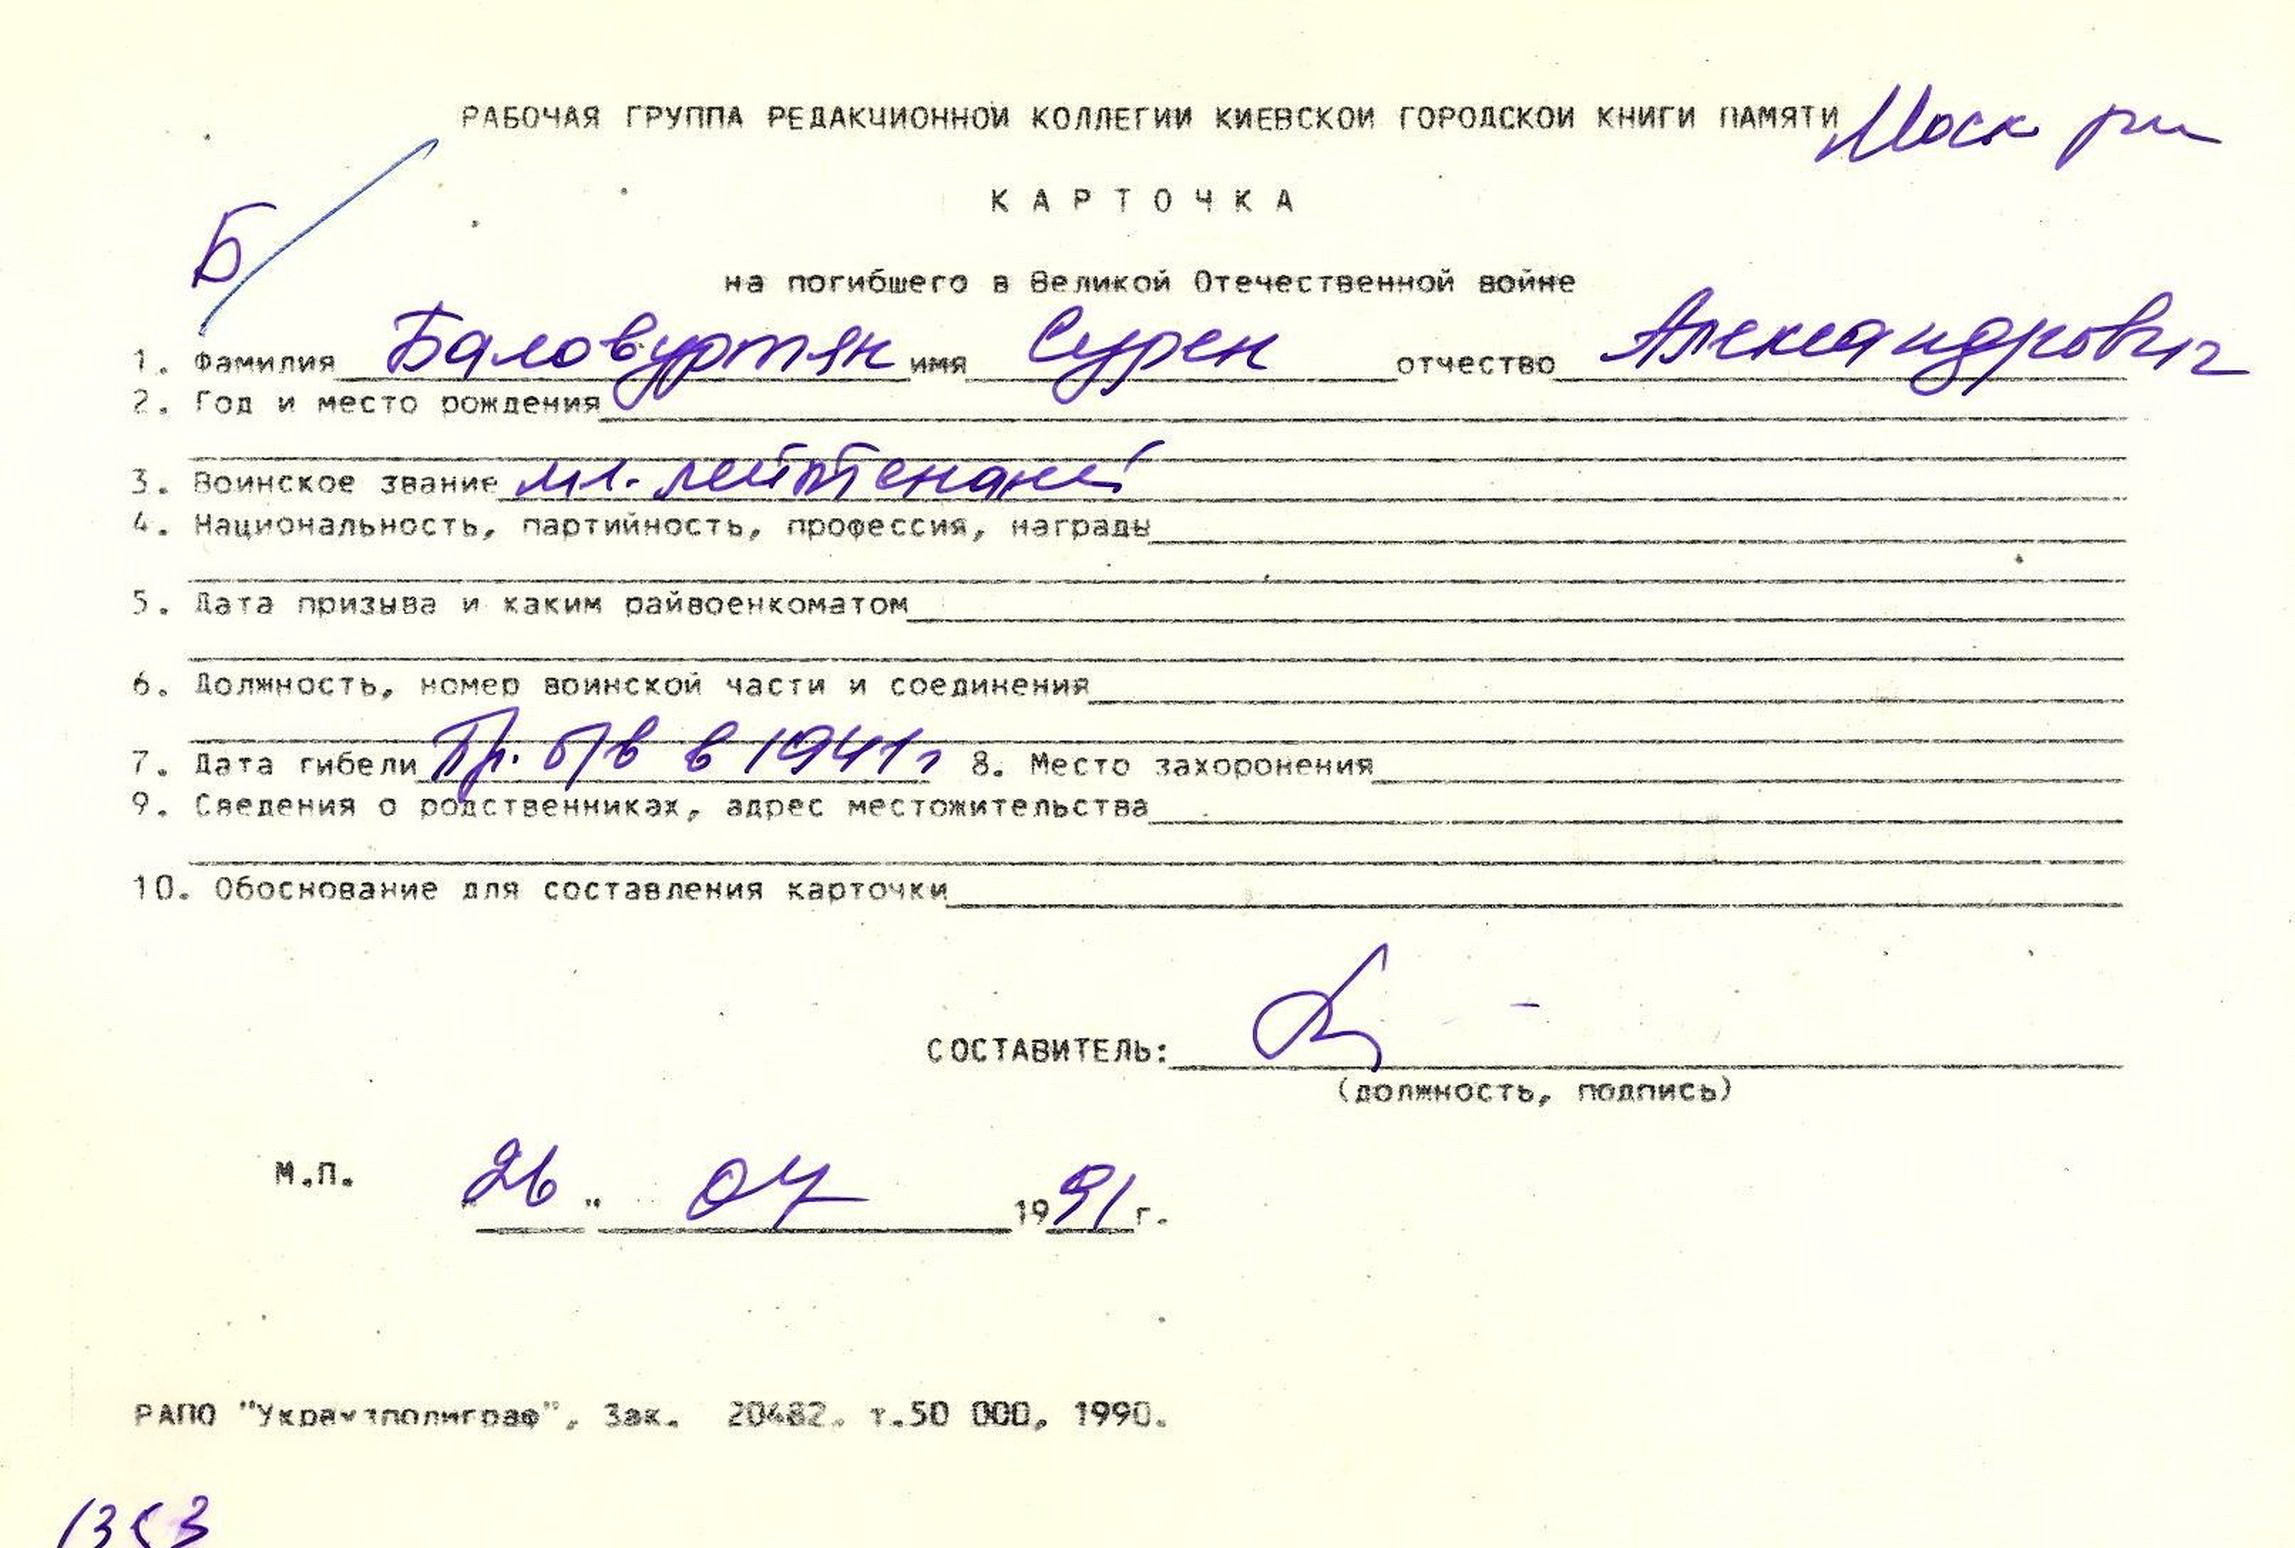 РАБОЧАЯ ГРУППА РЕДАКЦИОННОЙ КОЛЛЕГИИ КИЕВСКОЙ ГОРОДСКОЙ КНИГИ ПАМЯТИ Моск
КАРТОЧКА
Б
на погибшего в Великой Отечественной войне
1. Фамилия Баловуртян имя Сурен отчество Александрович
2. Год и место рождения
3. Воинское звание мл. лейтенант
4. Национальность, партийность, профессия, награды
5. Дата призыва и каким райвоенкоматом
6. Должность, номер воинской части и соединения
7. Дата гибели Пр. б/в в 1941г 8. Место захоронения
9. Сведения о родственниках, адрес местожительства
10. Обоснование для составления карточки
СОСТАВИТЕЛЬ:
(должность, подпись)
М.П. "26" 04 1991г.
РАПО "Укрвузполиграф", Зак. 20482. т.50 000, 1990.
1353